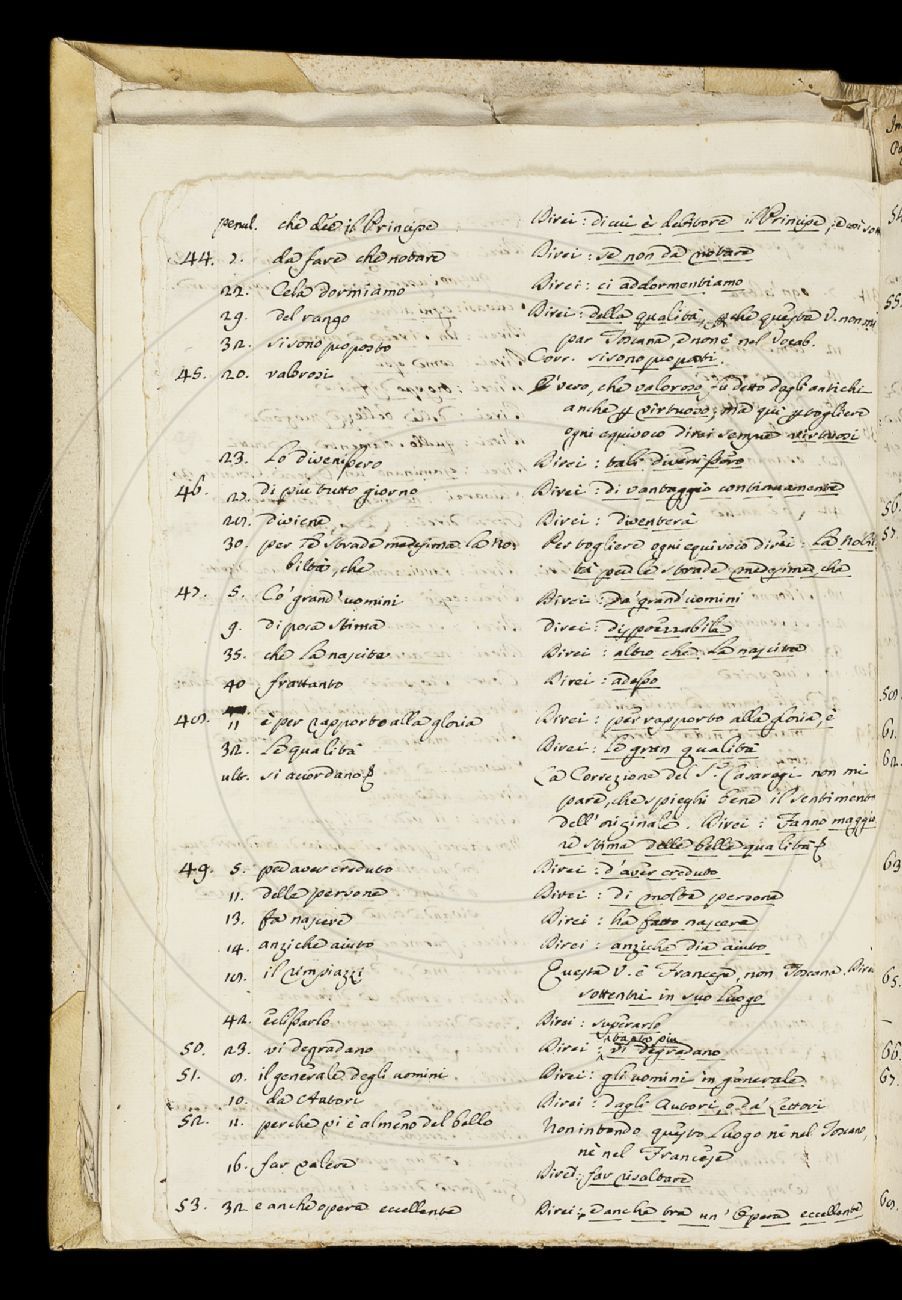 penul. che dèe il Principe Direi: di cui è debitore il Principe, e così
44. 2. da fare che notare Direi: se non da notare
22. Cela dormiamo Direi: ci addormentiamo
29. del rango Direi: della qualità, che questa V. non mi
par Toscana, e non è nel Vocab.
32. si sono proposto Corr. si sono proposti.
45. 20. valorosi È vero, che valoroso fu detto dagli antichi
anche virtuoso; ma qui togliere
ogni equivoco direi sempre virtuosi
23. Lo divenissero Direi: tali divenissero
46. 2. di più tutto giorno Direi: di vantaggio continuamente
28. diviene Direi: diventerà
30. per le strade medesime la No- Per togliere ogni equivoco direi: La Nobil
biltà, che tà per le strade medesime, che
47. 5. Co' grand' uomini Direi: Da' grand' uomini
9. di poca stima Direi: disprezzabile
35. che la nascita Direi: altro che la nascita
40 frattanto Direi: adesso
48. 11 è per rapporto alla gloria Direi: per rapporto alla gloria, è
32. Le qualità Direi: Le gran qualità
ult. si accordano La Correzione del Sr. Casaregi non mi
pare, che spieghi bene il sentimento
dell' originale. Direi: Fanno maggio
re stima delle belle qualità
49. 5. per aver creduto Direi: d'aver creduto
11. delle persone Direi: di molte persone
13. fa nascere Direi: ha fatto nascere
14. anziche aiuto Direi: anziche dia aiuto
18. il rimpiazzi Questa V. è Francese, non Toscana. Direi
sottentri in suo luogo
42. ecclissarlo Direi: superarlo
50. 23. vi degradano Direi: tanto più vi degradano
51. 8. il generale degli uomini Direi: gli uomini in generale
10. da Autori Direi: dagli Autori, e da' Lettori
52. 11. perche vi è almeno del bello Non intendo questo luogo nè nel Toscano,
nè nel Francese
16. far valere Direi: far risaltare
53. 32. e anche opera eccellente Direi: e anche tra un' Opera eccellente